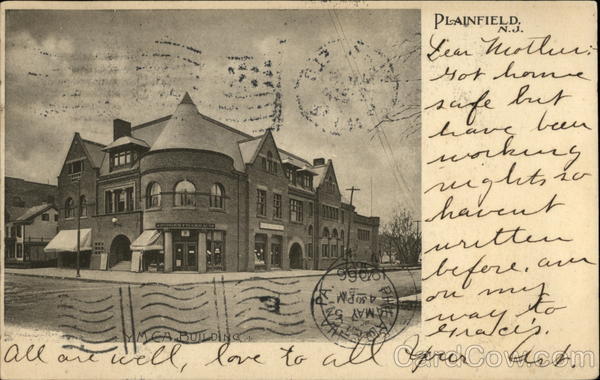 PLAINFIELD,
N.J.
Dear Mother:
Got home
safe but
have been
working
nights so
havent
written
before. am
on my
way to
Gracis.
All are well, love to all Your
Y.M.C.A. BUILDING
PA
MAY 5
430 PM
1906
CardCow.com